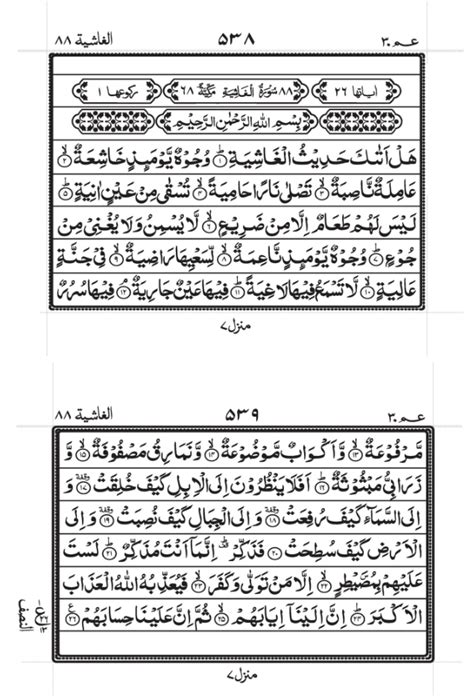 الغاشية ٨٨ ٥٣٨ عــم ٣٠
اٰياتها ٢٦ ٨٨ سُوْرَةُ الْغَاشِيَةِ مَكِّيَّةٌ ٦٨ ركوعها ١
بِسْمِ اللّٰهِ الرَّحْمٰنِ الرَّحِيْمِ
هَلْ اَتٰىكَ حَدِيْثُ الْغَاشِيَةِ ۝١ وُجُوْهٌ يَّوْمَىِٕذٍ خَاشِعَةٌ ۝٢
عَامِلَةٌ نَّاصِبَةٌ ۝٣ تَصْلٰى نَارًا حَامِيَةً ۝٤ تُسْقٰى مِنْ عَيْنٍ اٰنِيَةٍ ۝٥
لَيْسَ لَهُمْ طَعَامٌ اِلَّا مِنْ ضَرِيْعٍ ۝٦ لَّا يُسْمِنُ وَلَا يُغْنِيْ مِنْ
جُوْعٍ ۝٧ وُجُوْهٌ يَّوْمَىِٕذٍ نَّاعِمَةٌ ۝٨ لِّسَعْيِهَا رَاضِيَةٌ ۝٩ فِيْ جَنَّةٍ
عَالِيَةٍ ۝١٠ لَّا تَسْمَعُ فِيْهَا لَاغِيَةً ۝١١ فِيْهَا عَيْنٌ جَارِيَةٌ ۝١٢ فِيْهَا سُرُرٌ
منزل ٧
الغاشية ٨٨ ٥٣٩ عــم ٣٠
مَّرْفُوْعَةٌ ۝١٣ وَّاَكْوَابٌ مَّوْضُوْعَةٌ ۝١٤ وَّنَمَارِقُ مَصْفُوْفَةٌ ۝١٥ وَّ
زَرَابِيُّ مَبْثُوْثَةٌ ۝١٦ اَفَلَا يَنْظُرُوْنَ اِلَى الْاِبِلِ كَيْفَ خُلِقَتْ ۝١٧ وَ
اِلَى السَّمَآءِ كَيْفَ رُفِعَتْ ۝١٨ وَاِلَى الْجِبَالِ كَيْفَ نُصِبَتْ ۝١٩ وَاِلَى
الْاَرْضِ كَيْفَ سُطِحَتْ ۝٢٠ فَذَكِّرْ اِنَّمَآ اَنْتَ مُذَكِّرٌ ۝٢١ لَسْتَ
عَلَيْهِمْ بِمُصَۜيْطِرٍ ۝٢٢ اِلَّا مَنْ تَوَلّٰى وَكَفَرَ ۝٢٣ فَيُعَذِّبُهُ اللّٰهُ الْعَذَابَ
الْاَكْبَرَ ۝٢٤ اِنَّ اِلَيْنَآ اِيَابَهُمْ ۝٢٥ ثُمَّ اِنَّ عَلَيْنَا حِسَابَهُمْ ۝٢٦
النصف
منزل ٧